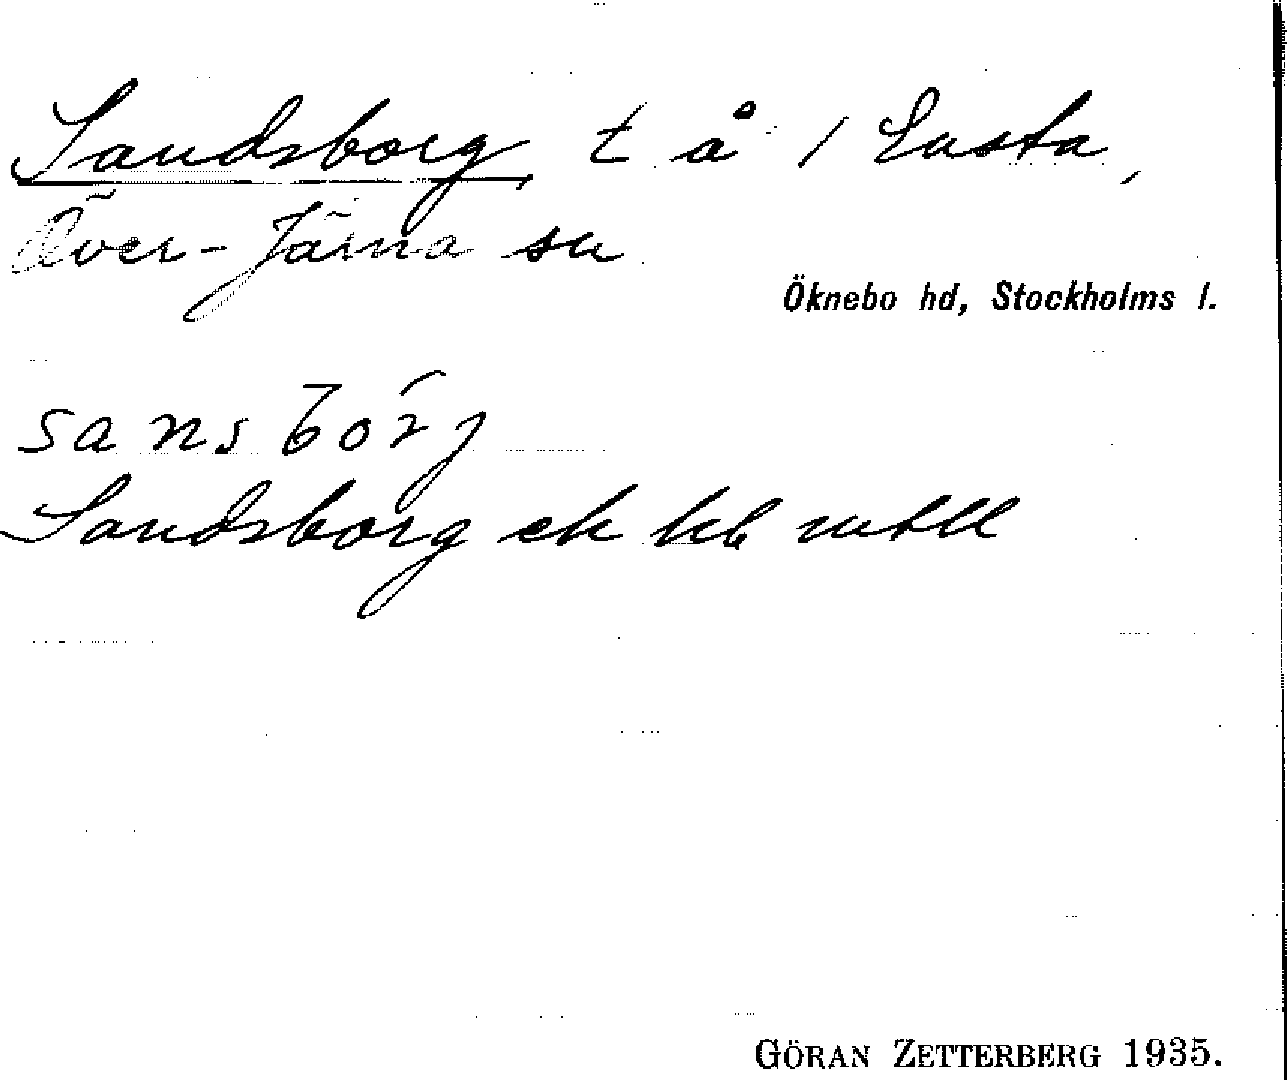 Sandsborg t å 1 Easta,
Över-Järna sn
Öknebo hd, Stockholms l.
sansbórj
Sandsborg ek kb mtll
GÖRAN ZETTERBERG 1935.